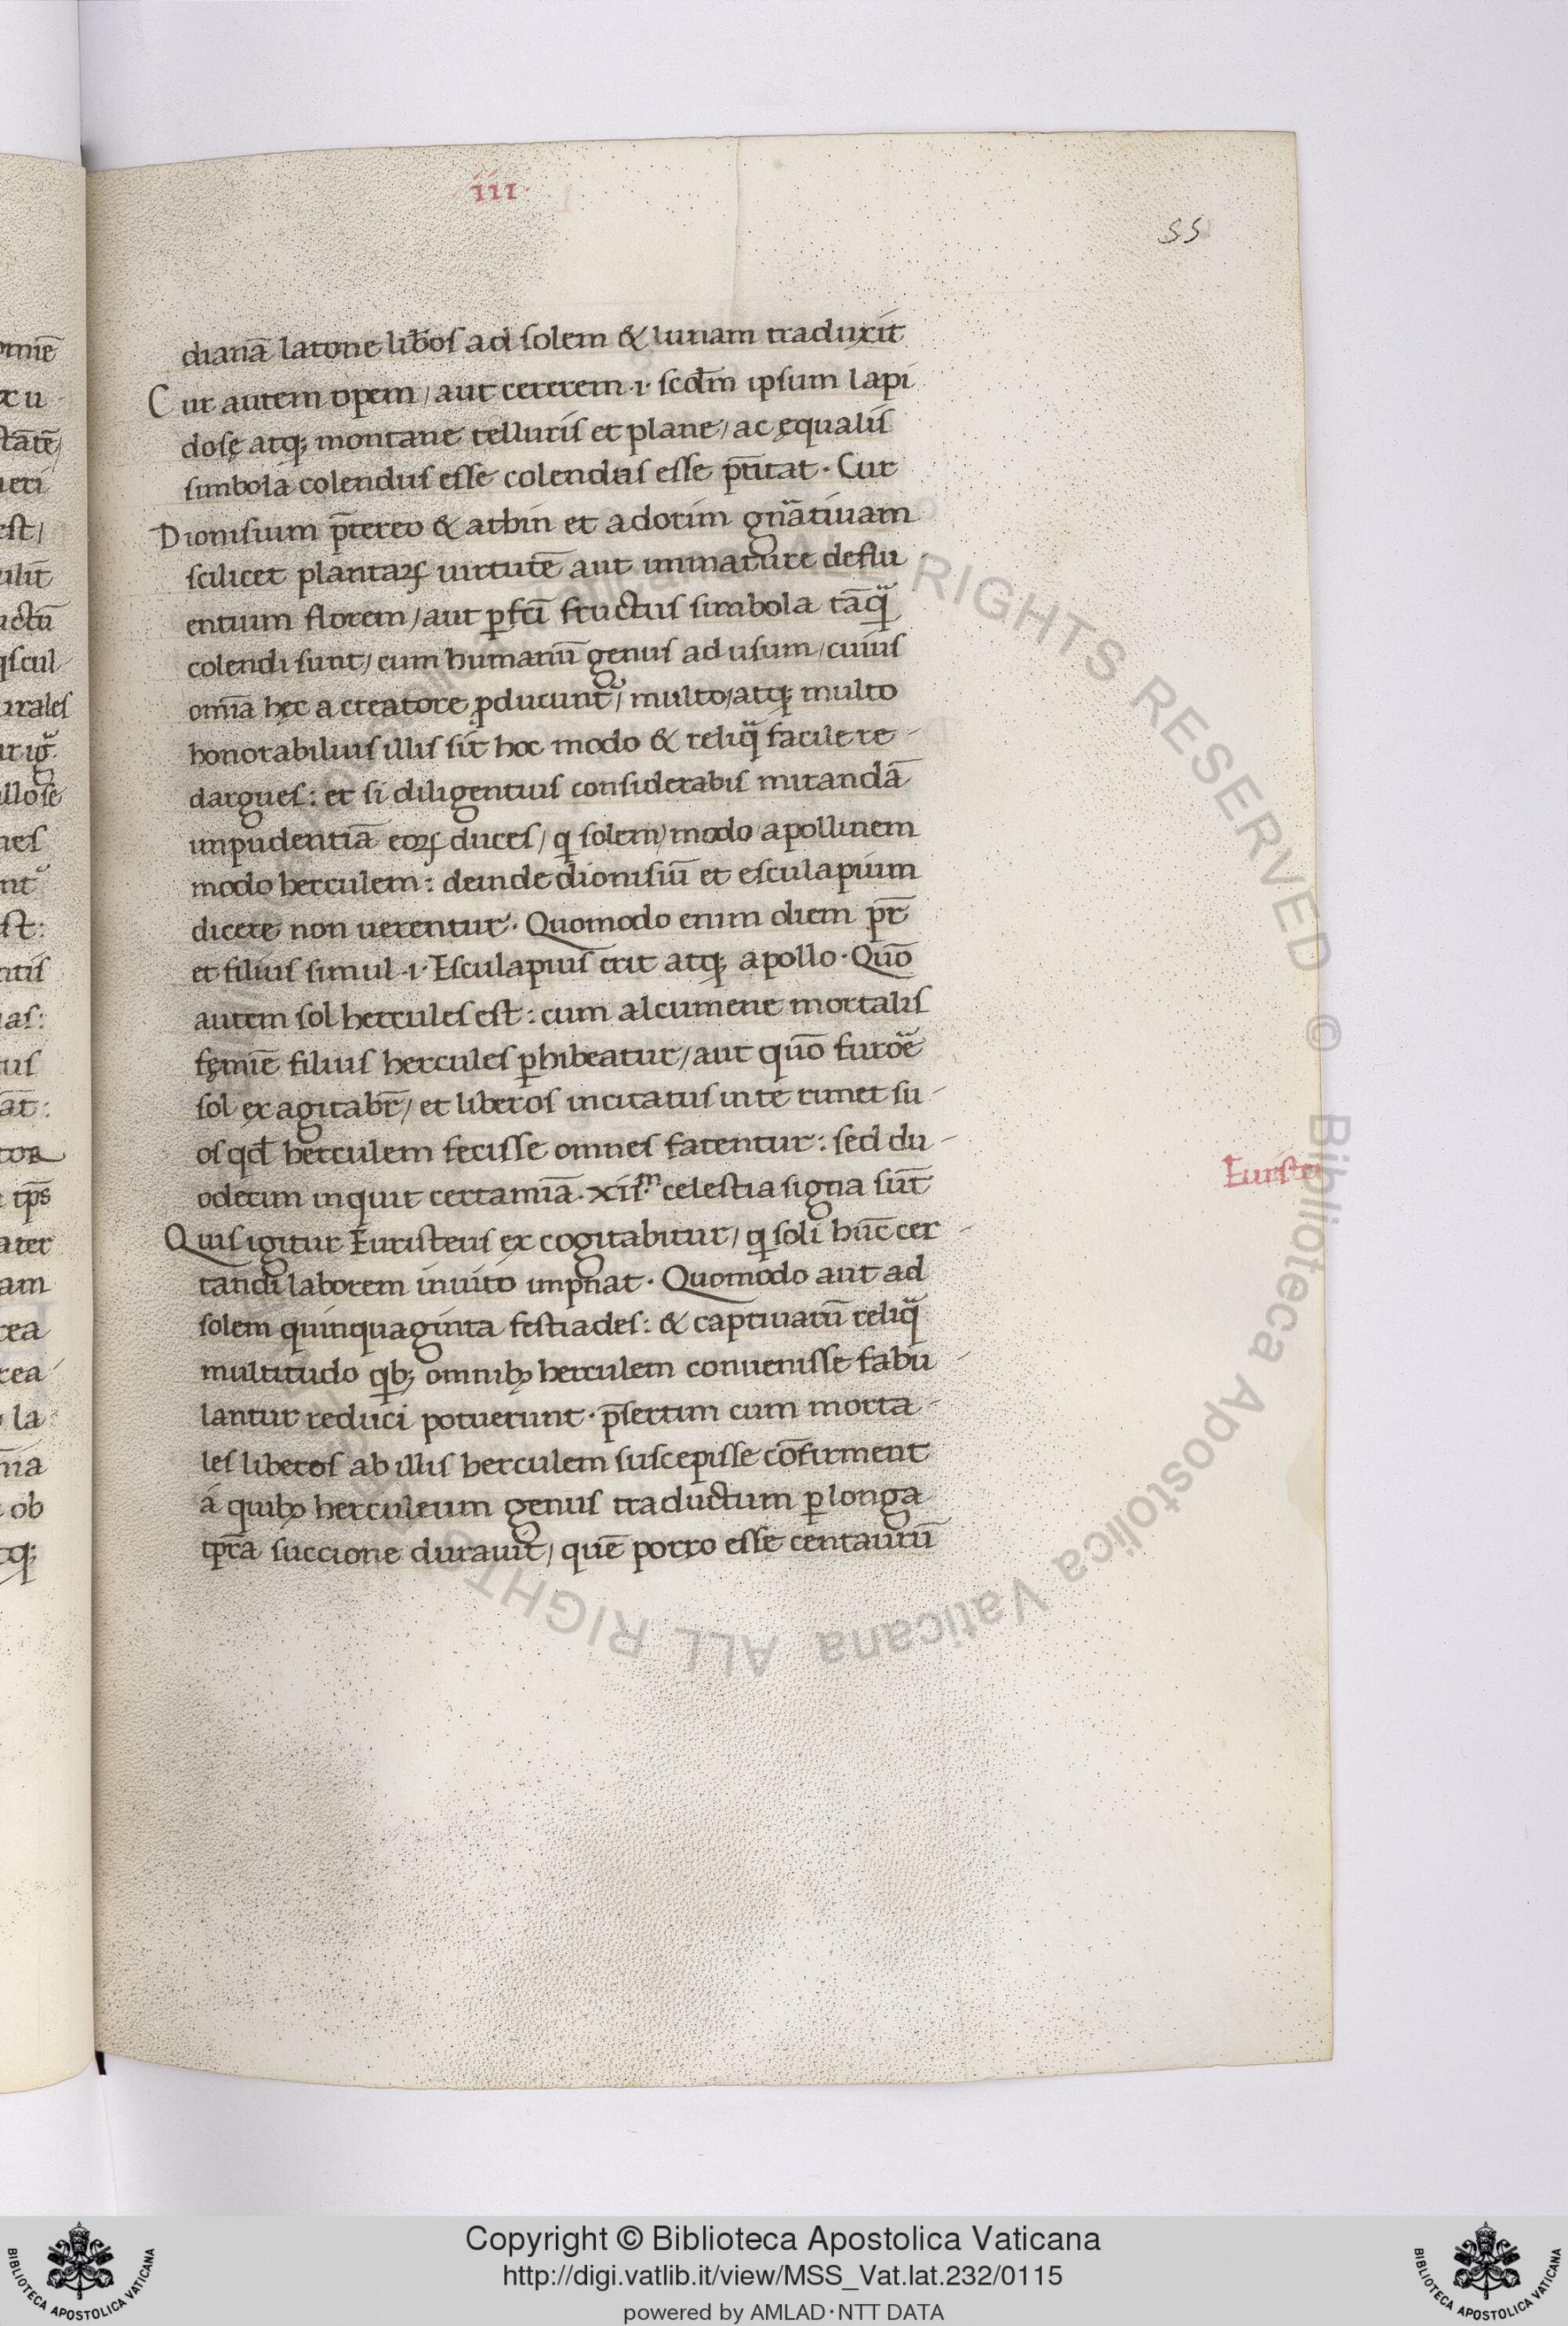 iii
55
dianā latone lib̄os ad solem & lunam traduxit
Cur autem opem / aut cererem .i. scd̄m ipsum lapi
dosę atq; montane telluris et plane / ac ęqualis
simbola colendus esse colendas esse p̄titat. Cur
Dionisium p̄tereo & atbin et adorim gnãtiuam
scilicet plantaꝝ uirtutē aut immature deflu-
entium florem / aut ꝑfcī fructus simbola tāq̃
colendi sunt / cum humanū genus ad usum / cuius
omīa hęc a creatore ꝓducunt̃ / multo / atq; multo
honorabilius illis sit hoc modo & reliq̃ facile re-
dargues: et si diligentius considerabis mirandā
impudentiā eoꝝ duces / q solem / modo apollinem
modo herculem: deinde dionisiū et esculapium
dicere non uerentur. Quomodo enim diem pr̄
et filius simul .i. Esculapius erit atq; apollo. Quō
autem sol hercules est: cum alcumene mortalis
fęmīe filius hercules ꝑhibeatur / aut quō furōe
sol exagitabr̄ / et liberos incitatus inte rimet su-
os qd̄ herculem fecisse omnes fatentur: sed du-
odecim inquit certamīa. xii.m celestia signa sūt
Quis igitur Euristeus ex cogitabitur / q soli hūc cer-
tandi laborem inuito imp̄nat. Quomodo aūt ad
solem quinquaginta festiades: & captiuarū reliq̃
multitudo qb; omnibꝫ herculem conuenisse fabu-
lantur reduci potuerunt. p̄sertim cum morta-
les liberos ab illis herculem suscepisse cōfirment
á quibꝫ herculeum genus traductum ꝑ longa
tp̄ra succione durauit / quē porro esse centaurū
Euriste
omiē
xu
tātē
ueri
est /
ulit
uctū
qscul
urales
ur ig̃
llose
nes
nt̃
st:
ntis
as:
us
āt:
tor
tp̄s
ater
am
rea
rea
la
nīa
ob
tq;
ALL RIGHTS RESERVED © Biblioteca Apostolica Vaticana ALL RIGHTS
Copyright © Biblioteca Apostolica Vaticana
http://digi.vatlib.it/view/MSS_Vat.lat.232/0115
powered by AMLAD·NTT DATA
BIBLIOTECA APOSTOLICA VATICANA
BIBLIOTECA APOSTOLICA VATICANA